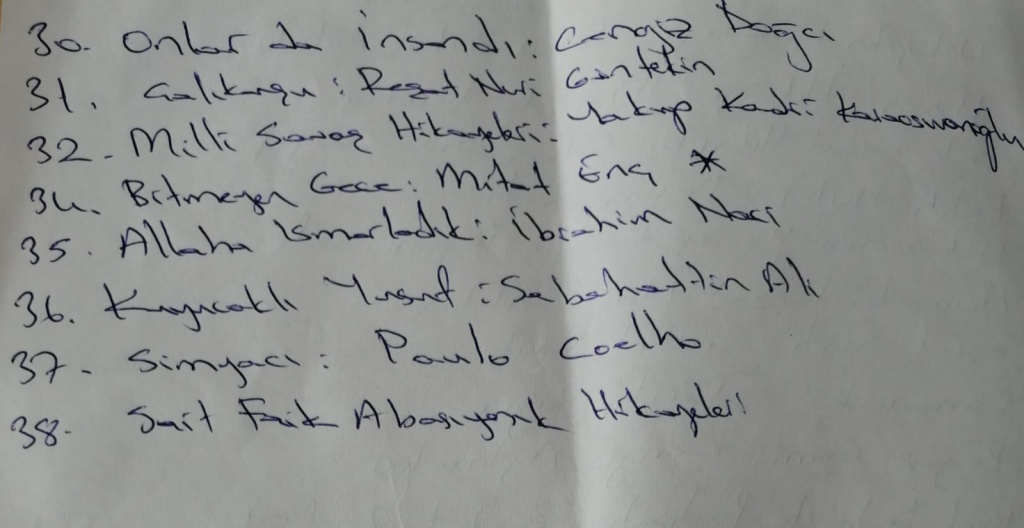 30. Onlar da İnsandı: Cengiz Dağcı
31. Çalıkuşu: Reşat Nuri Güntekin
32. Milli Savaş Hikayeleri: Yakup Kadri Karaosmanoğlu
34. Bitmeyen Gece: Mitat Enç *
35. Allaha Ismarladık: İbrahim Naci
36. Kuyucaklı Yusuf: Sabahattin Ali
37. Simyacı: Paulo Coelho
38. Sait Faik Abasıyanık Hikayeleri